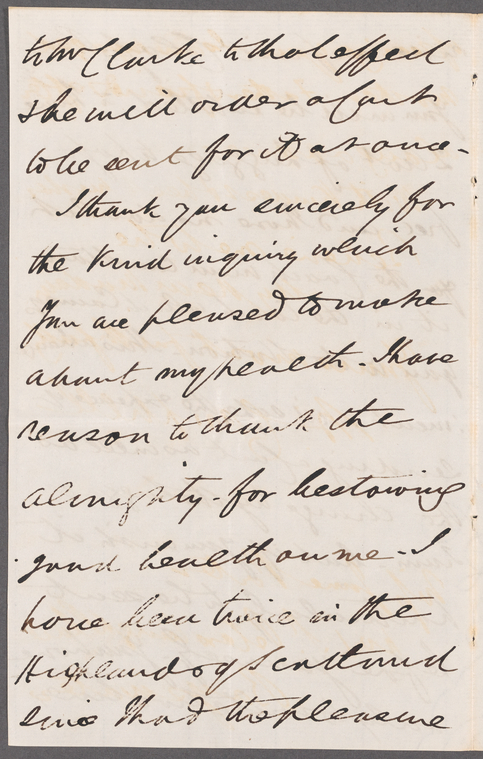 to Mr Clarke to that effect
she will order a Cart
to be sent for it at once -
I thank you sincerely for
the kind inquiry which
You are pleased to make
about my health - I have
reason to thank the
almighty - for bestowing
good health on me - I
have been twice in the
Highlands of Scotland
since I had the pleasure